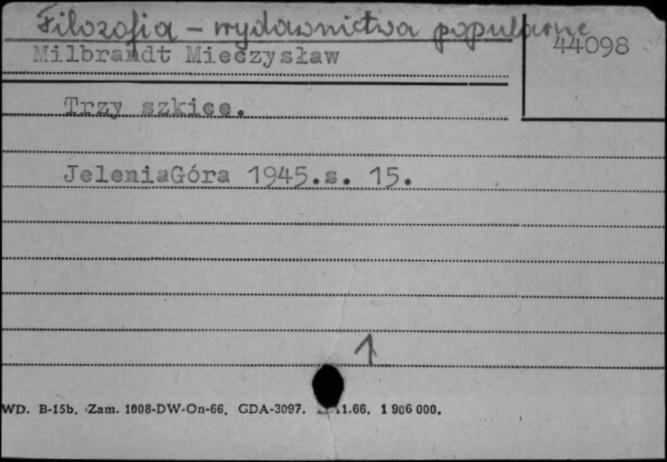 Filozofia - wydawnictwa popularne
44098
Milbrandt Mieczysław
Trzy szkice.
JeleniaGóra 1945.s. 15.
WD. B-15b. Zam. 1008-DW-On-66. GDA-3097. 11.66. 1 906 000.